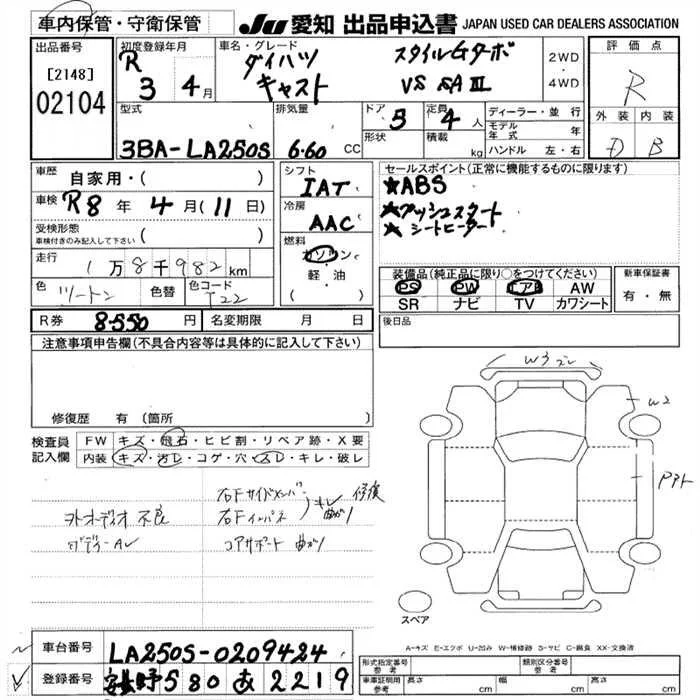 車内保管・守衛保管
JU 愛知 出品申込書 JAPAN USED CAR DEALERS ASSOCIATION
出品番号
[2148]
02104
初度登録年月
R 3 4月
車名・グレード
ダイハツ スタイルGターボ
キャスト VS SAⅢ
2WD
・
4WD
評価点
R
外装 内装
D B
型式
3BA-LA250S
排気量
6.60 CC
ドア 5
形状
定員 4人
積載 kg
ディーラー・並行
モデル年式 年
ハンドル 左・右
車歴 自家用・( )
車検 R8年 4月(11日)
受検形態
車検付きのみ記入して下さい ( )
走行
1万8千982km
色 ツートン 色替 色コード T22
シフト
IAT
冷房
AAC
燃料
ガソリン
軽・油
( )
セールスポイント(正常に機能するものに限ります)
★ABS
★プッシュスタート
★シートヒーター
装備品(純正品に限り○をつけてください)
PS PW エアB AW
SR ナビ TV カワシート
新車保証書
有・無
R券 8.550円 名変期限 月 日
後日品
注意事項申告欄(不具合内容等は具体的に記入して下さい)
修復歴 有(箇所
検査員
記入欄
FW キズ・飛石・ヒビ割・リペア跡・X要
内装 キズ・汚レ・コゲ・穴・スレ・キレ・破レ
右Fサイドメンバー
右Fインパネ 曲がり 修復
コアサポート 曲がり
オーディオ不良
ボディーAU
W3
W2
スペア
A-キズ E-エクボ U-凹み W-補修跡 S-サビ C-腐食 XX-交換済
車台番号 LA250S-0209424
登録番号 580 あ 2219
形式指定番号
参考
類別区分番号
参考
車庫証明用
参考
長さ cm
幅 cm
高さ cm